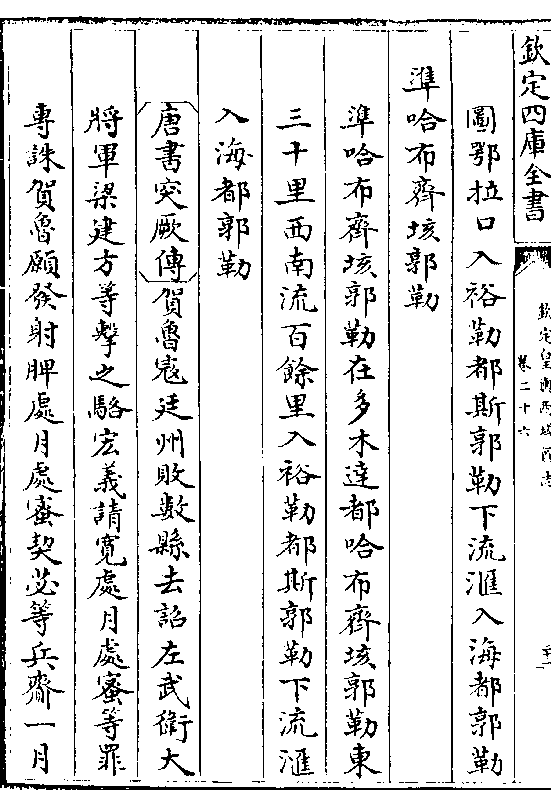 欽定四庫全書
欽定皇輿西域圖志
卷二十六
圖鄂拉口入裕勒都斯郭勒下流滙入海都郭勒
準哈布齊垓郭勒
準哈布齊垓郭勒在多木達都哈布齊垓郭勒東
三十里西南流百餘里入裕勒都斯郭勒下流滙
入海都郭勒
唐書突厥傳賀魯寇廷州敗數縣去詔左武衛大
將軍梁建方等擊之駱宏義請寬處月處蜜等罪
專誅賀魯願發射脾處月處蜜契苾等兵齎一月